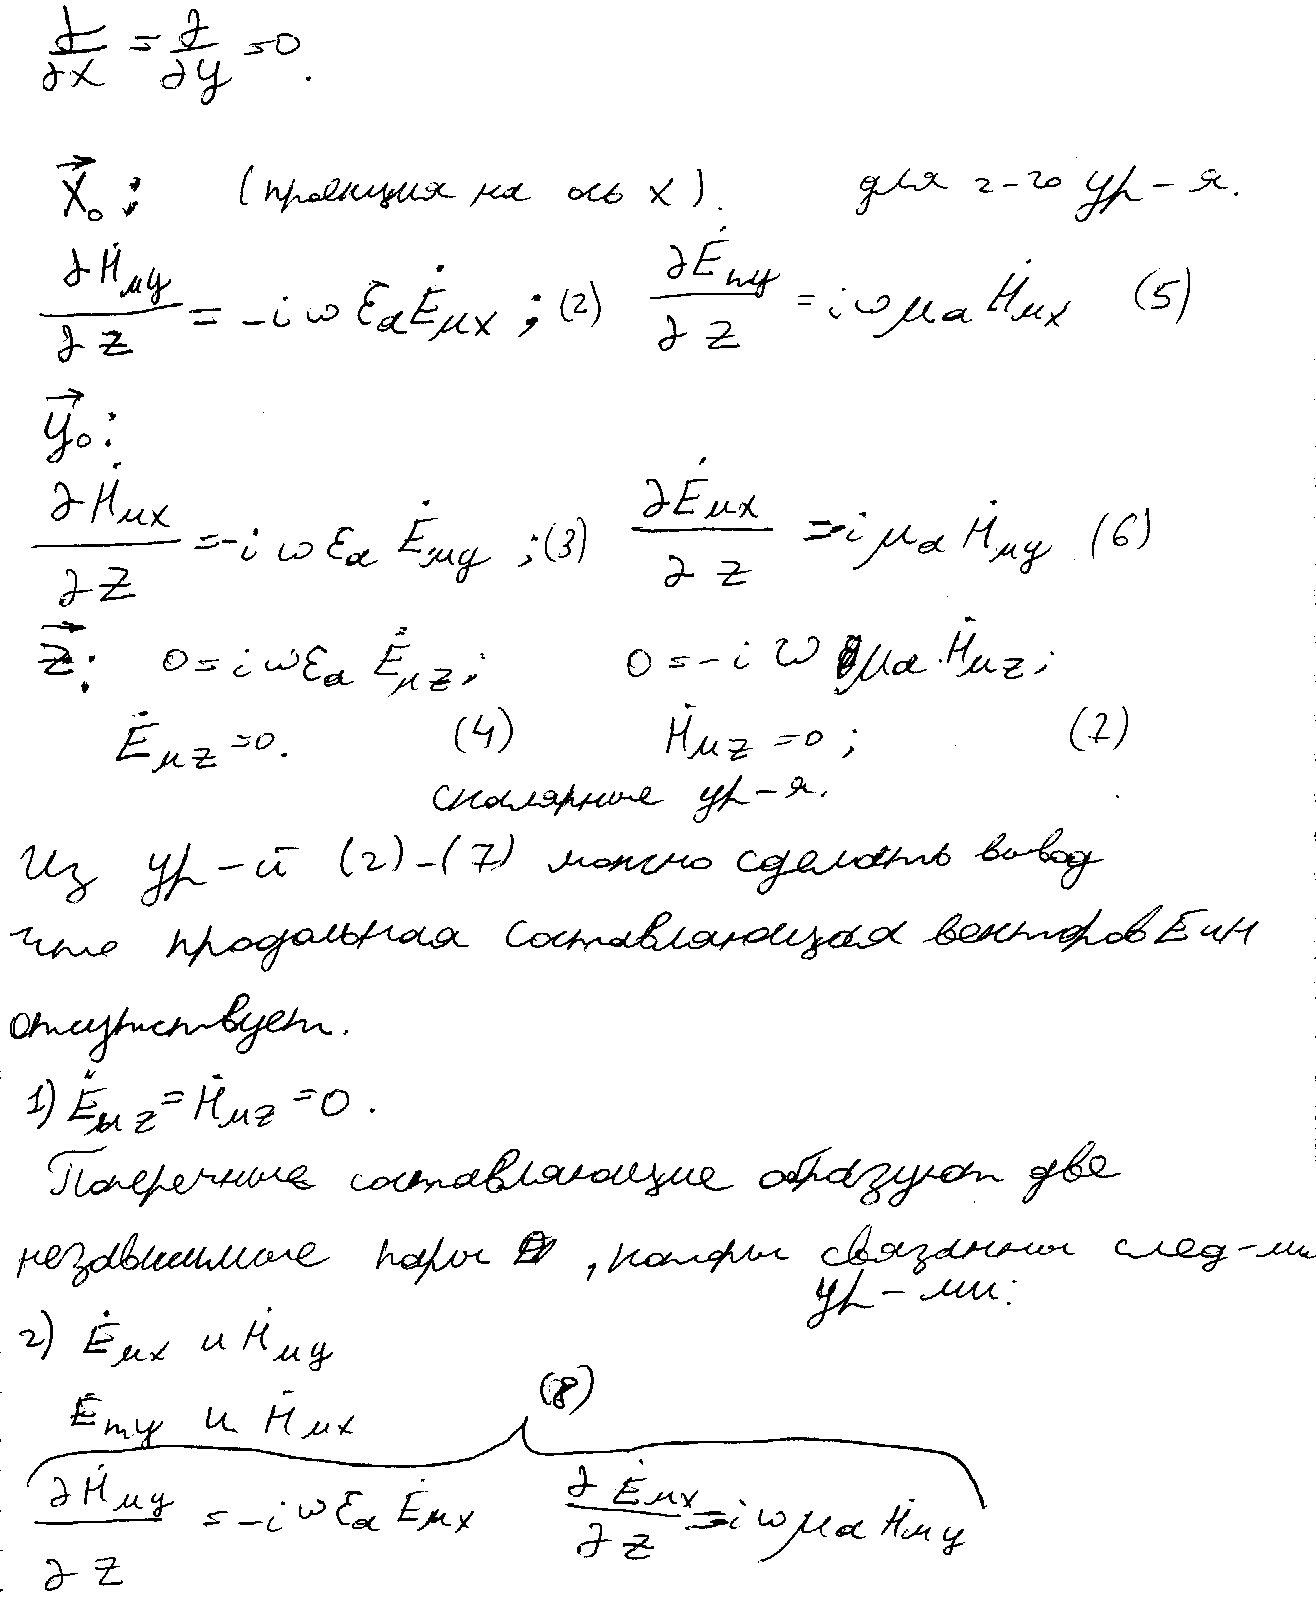 ∂/∂x = ∂/∂y = 0.
X⃗₀: (проекция на ось X). для 2-го ур-я.
∂Ḣmy/∂z = -iωεaĖmx; (2) ∂Ėmy/∂z = iωμaḢmx (5)
y⃗₀:
∂Ḣmx/∂z = -iωεaĖmy; (3) ∂Ėmx/∂z = -iμaḢmy (6)
z⃗: 0 = iωεaĖmz; 0 = -iωμa·Ḣmz;
Ėmz = 0. (4) Ḣmz = 0; (7)
скалярные ур-я.
Из ур-й (2)-(7) можно сделать вывод
что продольная составляющая векторов E и H
отсутствует.
1) Ėmz = Ḣmz = 0.
Поперечные составляющие образуют две
независимые пары, которы связанны след-ми
ур-ми:
2) Ėmx и Ḣmy
Ėmy и Ḣmx (8)
∂Ḣmy/∂z = -iωεaĖmx ∂Ėmx/∂z = -iωμaḢmy